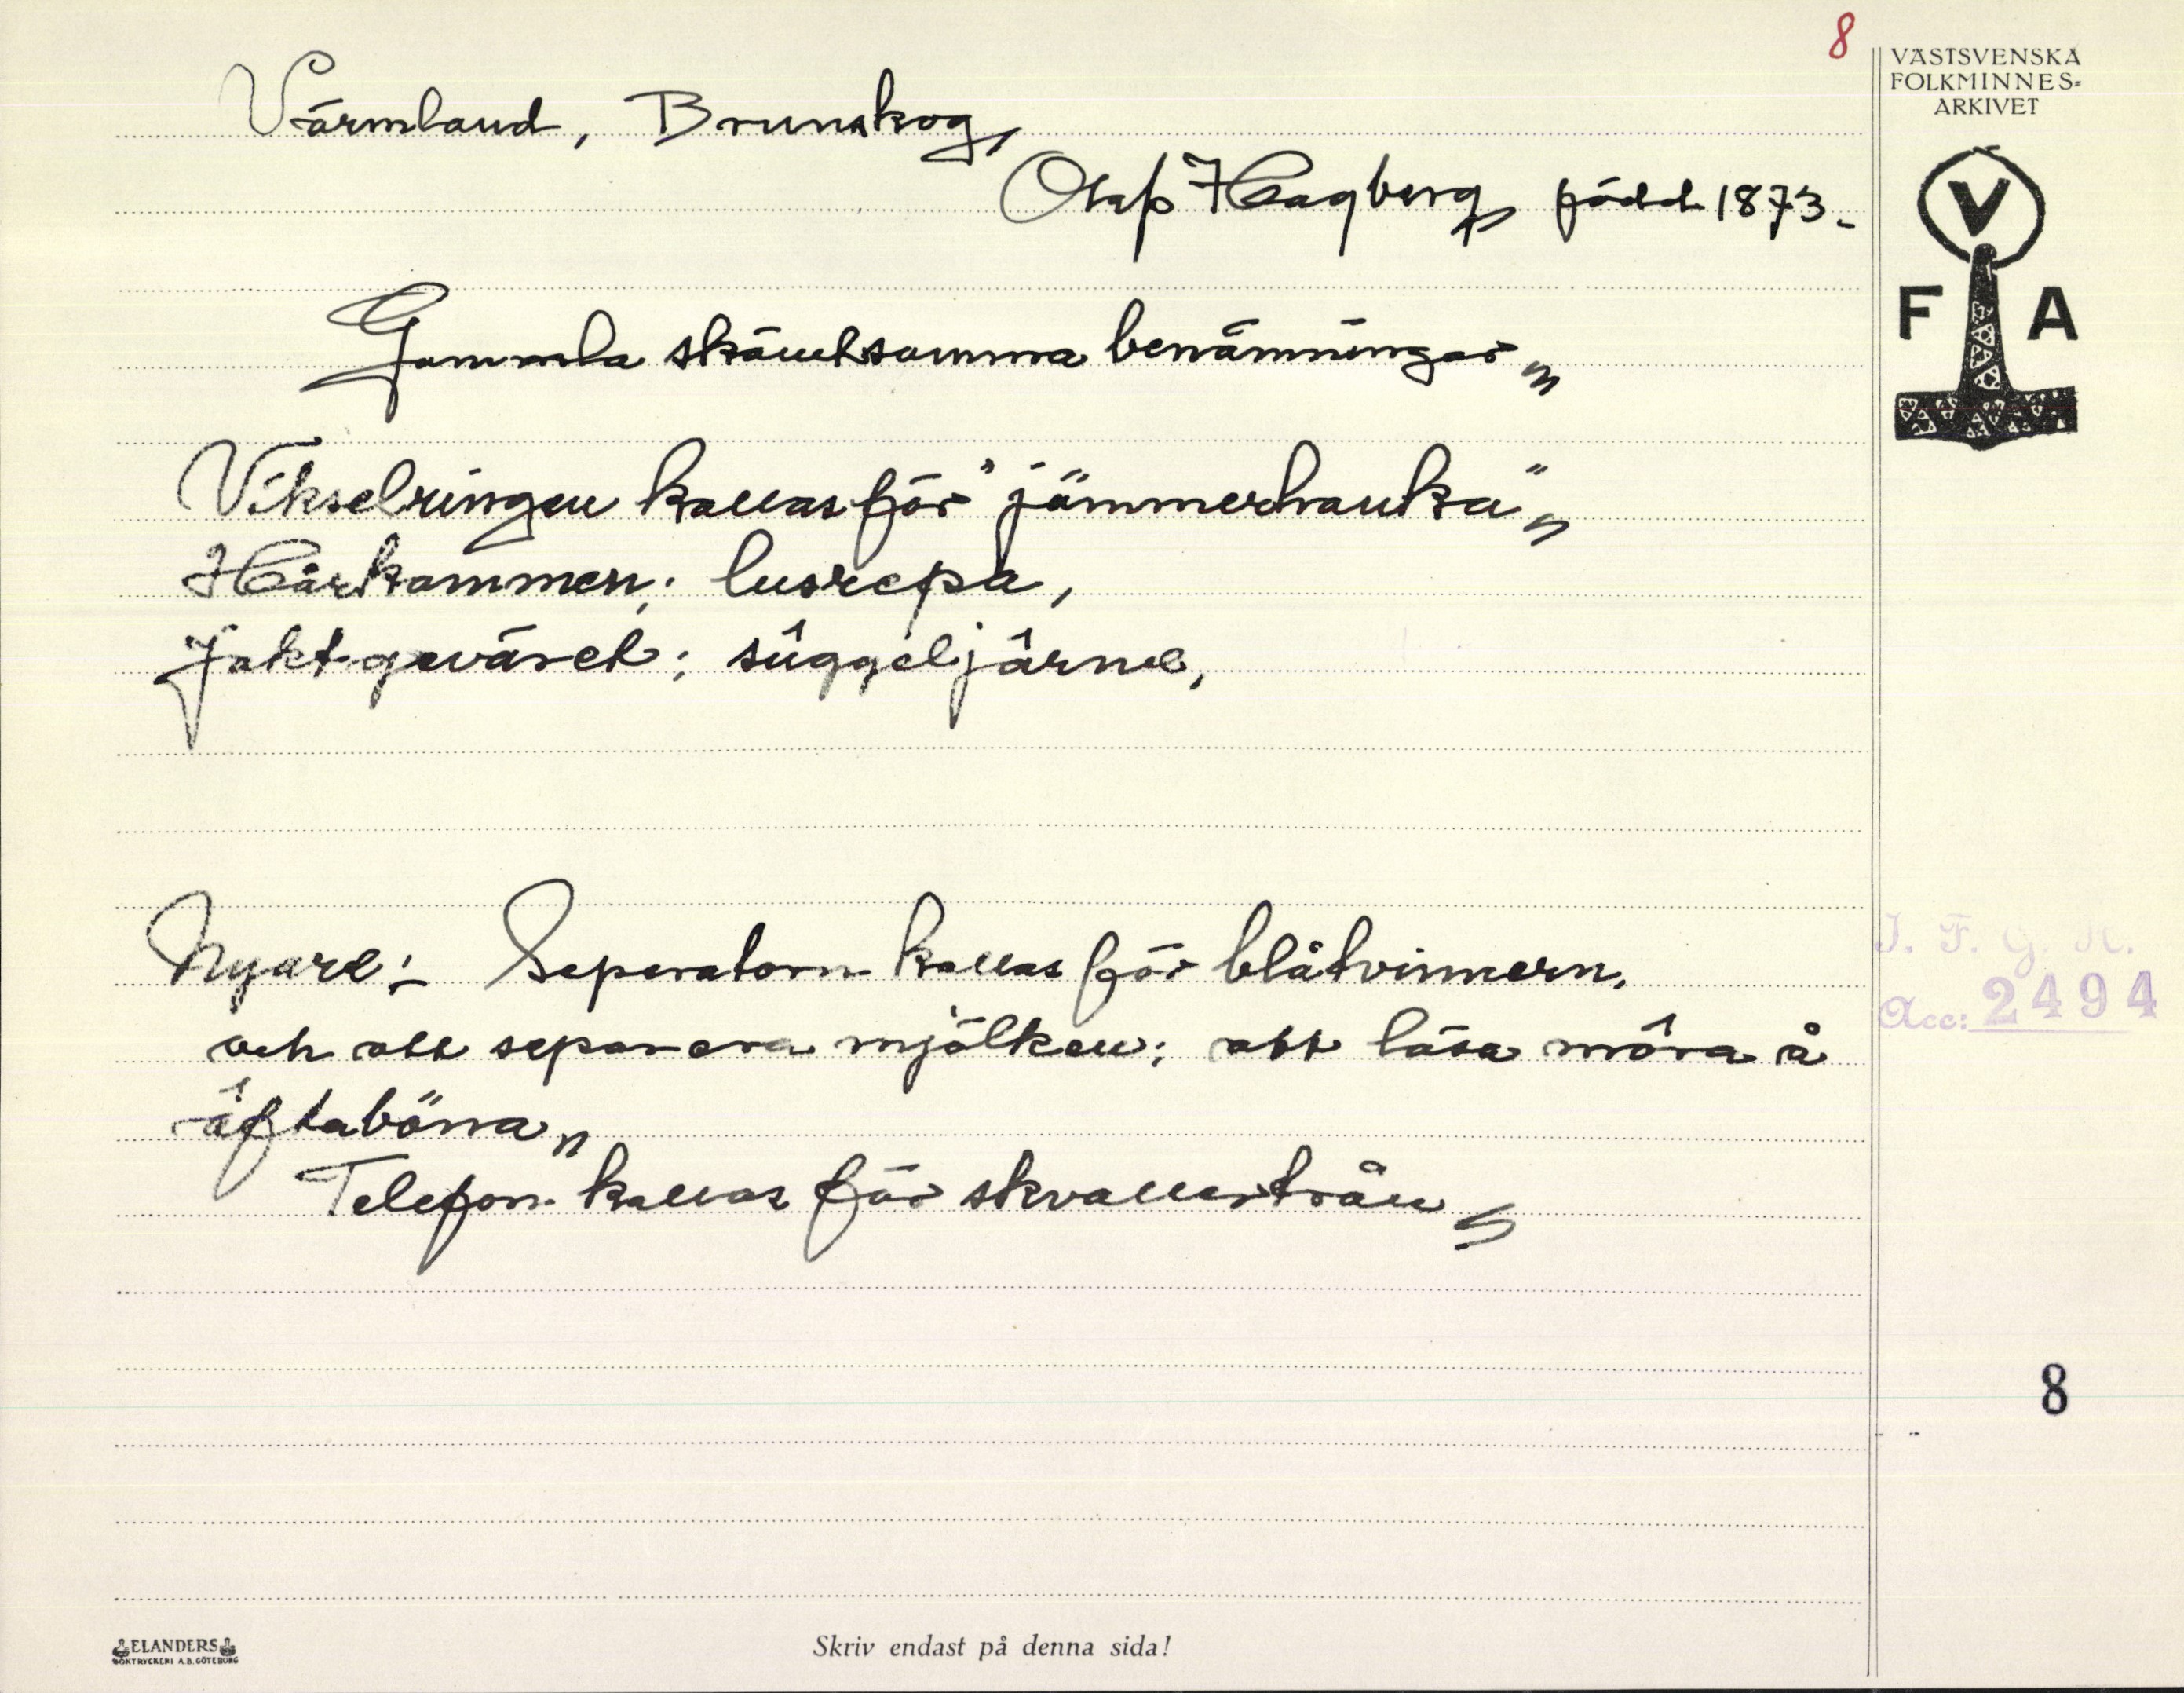 8
VÄSTSVENSKA
FOLKMINNES-
ARKIVET
V
F A
Värmland, Brunskog,
Olof Hagberg, född 1873.
Gammla skämtsamma benämningar„
Vikselringen kallas för "jämmerhanka"„
Hårkammen; lusrepa,
Jaktgeväret; sûggeljârne,
Nyare:- Seperatorn kallas för blåtvinnern.
och att separera mjölken; att läsa môra å
äftaböna„
Telefon kallas för skvallertrån„
I. F. G. H.
Acc: 2494
8
ELANDERS
BOKTRYCKERI A.B. GÖTEBORG
Skriv endast på denna sida!